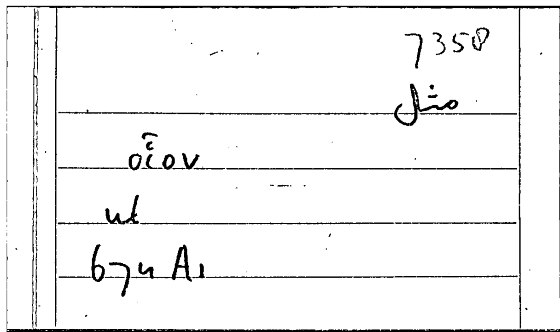 7358
مثل
οἷον
ut
67u A1